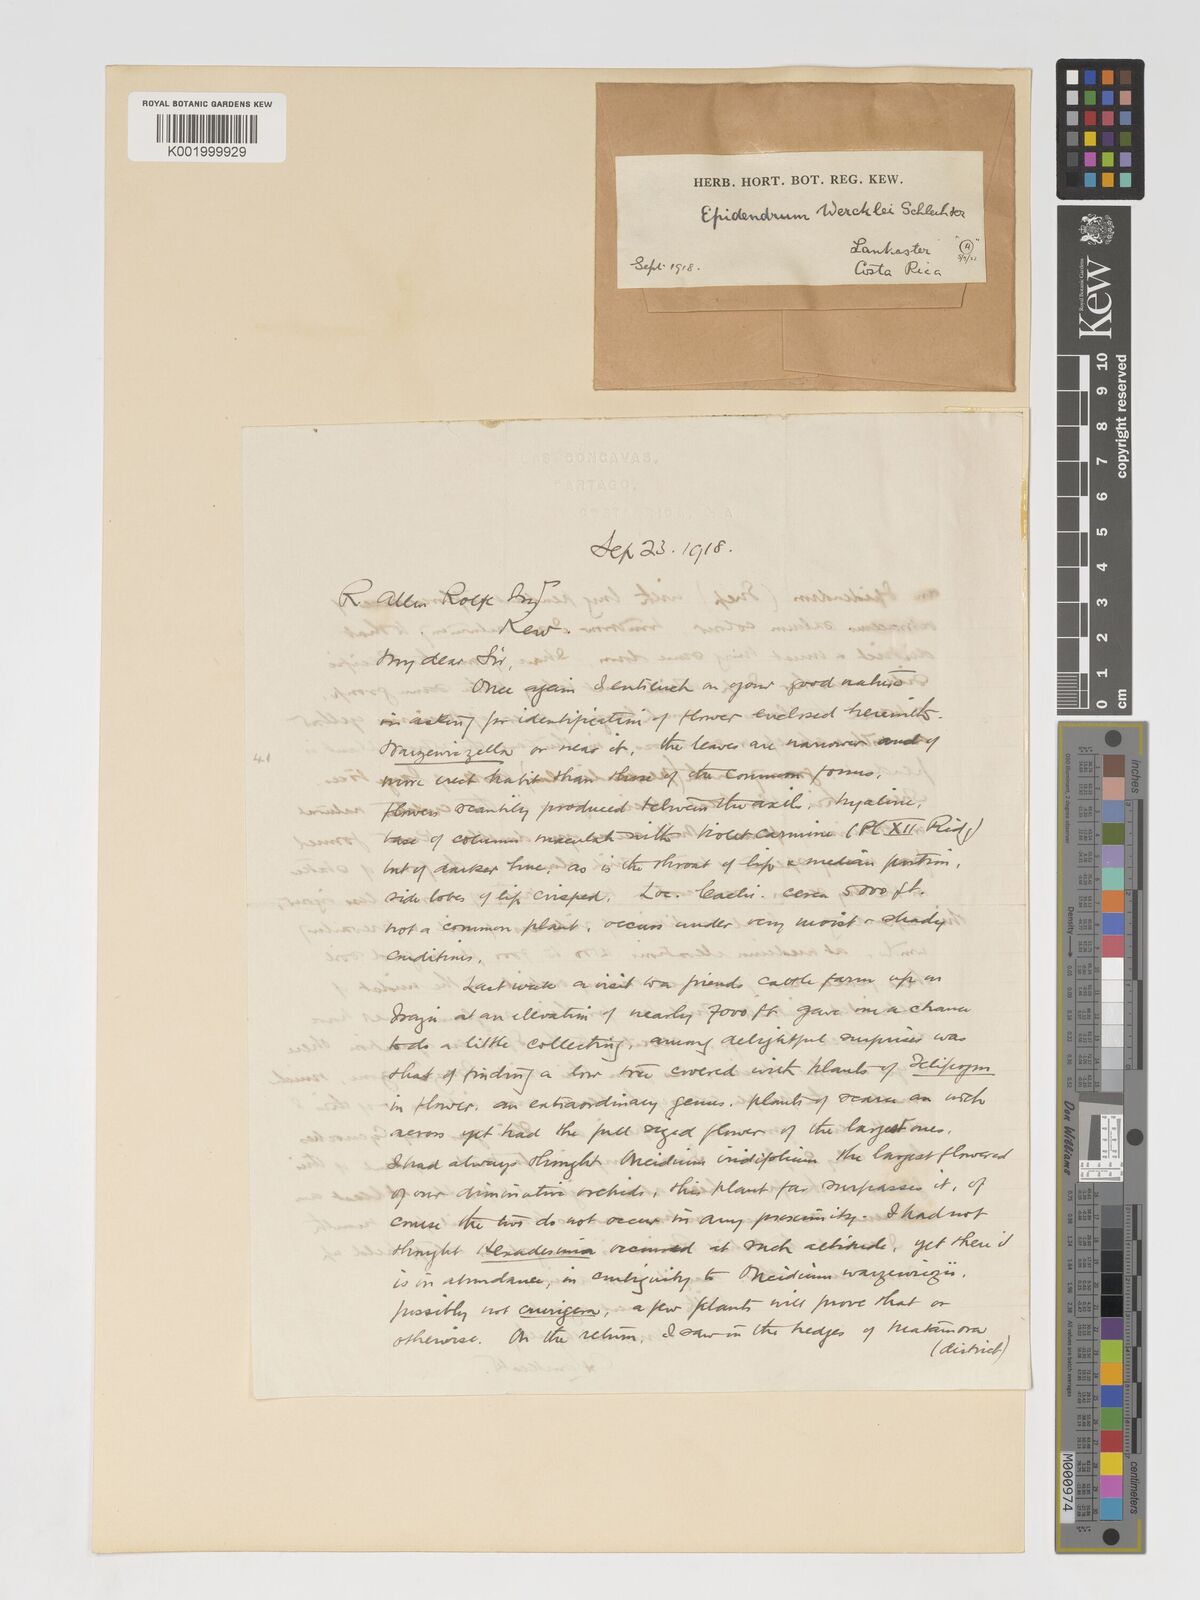 ROYAL BOTANIC GARDENS KEW
K001999929
HERB. HORT. BOT. REG. KEW.
Epidendrum Wercklei Schlechter
Lankester "(A)"
Sept. 1918.
Costa Rica
LAS CONCAVAS,
CARTAGO,
Sep 23. 1918.
R. Allen Rolfe Esqr
Kew.
My dear Sir,
Once again I entrench on your good nature
in asking for identification of flower enclosed herewith.
Warzewiczella or near it, the leaves are narrower and of
more erect habit than those of the common forms,
flowers scantily produced between the axils, hyaline,
base of column maculate with violet carmine (Pl XII Ridg)
but of darker hue, as is the throat of lip & median portion,
side lobes of lip crisped. Loc. Cachi. circa 5000 ft.
not a common plant, occurs under very moist & shady
conditions.
Last week a visit to a friends cattle farm up on
Irazu at an elevation of nearly 7000 ft gave me a chance
to do a little collecting, among delightful surprises was
that of finding a low tree covered with plants of Telipogon
in flower, an extraordinary genus. plants of scarce an inch
across yet had the full sized flower of the largest ones.
I had always thought Oncidium iridifolium the largest flowered
of our diminutive orchids, this plant far surpasses it, of
course the two do not occur in any proximity. I had not
thought Hexadesmia occurred at such altitude, yet there it
is in abundance, in contiguity to Oncidium warzewiczii,
possibly not , a few plants will prove that or
otherwise. On the return, I saw in the hedges of Matamora
(district)
Kew
Royal Botanic Gardens
copyright reserved
0 1 2 3 4 5 6 7 8 9 10
cm
inches
Density
Don Williams
M000974
centimeters